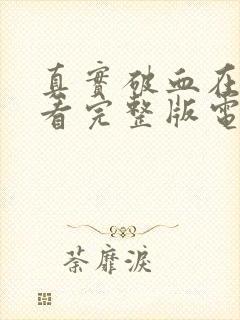 真實破血在
看完整版電
荼靡淚